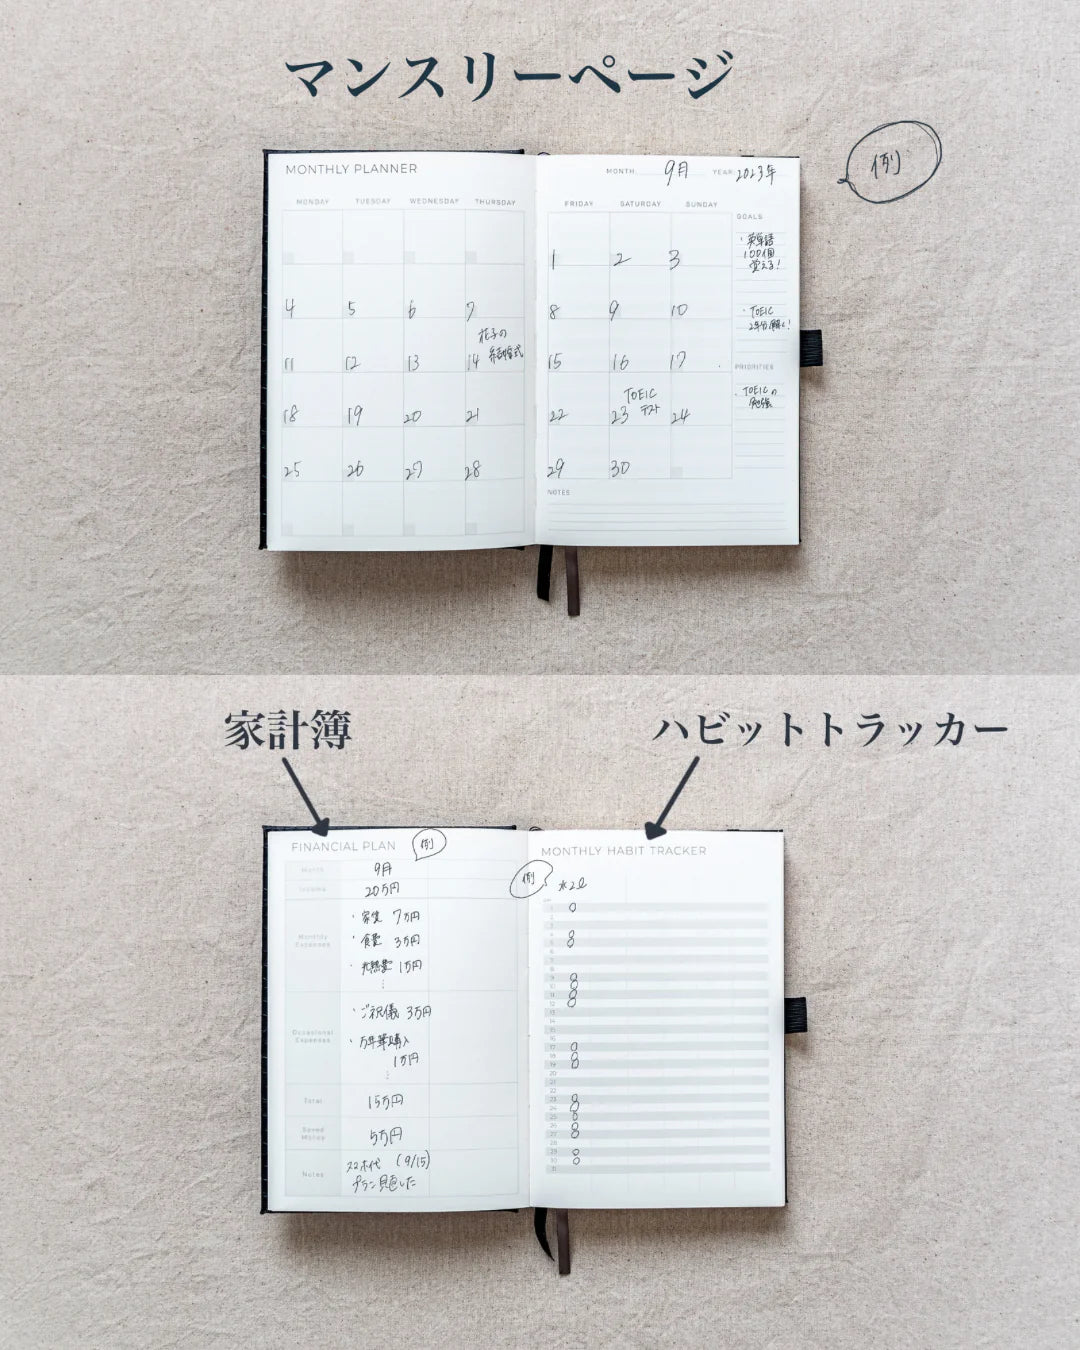 マンスリーページ
例
MONTHLY PLANNER
MONDAY TUESDAY WEDNESDAY THURSDAY
4 5 6 7
花子の
結婚式
11 12 13 14
18 19 20 21
25 26 27 28
MONTH 9月 YEAR 2023年
FRIDAY SATURDAY SUNDAY
1 2 3
8 9 10
15 16 17
TOEIC
テスト
22 23 24
29 30
GOALS
・英単語
100個
覚える!
・TOEIC
2年分解く!
PRIORITIES
・TOEICの
勉強
NOTES
家計簿
ハビットトラッカー
FINANCIAL PLAN
例
Month 9月
Income 20万円
Monthly
Expenses
・家賃 7万円
・食費 3万円
・光熱費 1万円
⋮
Occasional
Expenses
・ご祝儀 3万円
・万年筆購入
1万円
⋮
Total 15万円
Saved
Money
5万円
Notes
スマホ代 (9/15)
プラン見直した
MONTHLY HABIT TRACKER
例
水2ℓ
1
2
3
4
5
6
7
8
9
10
11
12
13
14
15
16
17
18
19
20
21
22
23
24
25
26
27
28
29
30
31